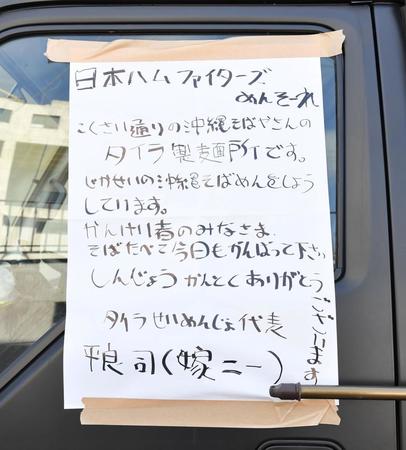 日本ハムファイターズ
めんそーれ
こくさい通りの沖縄そばやさんの
タイラ製麺所です。
じかせいの沖縄そばめんをしよう
しています。
かんけい者のみなさま
そばたべて今日もがんばって下さい
しんじょうかんとくありがとうございます
タイラせいめんじょ代表
平良司(嫁ニー)